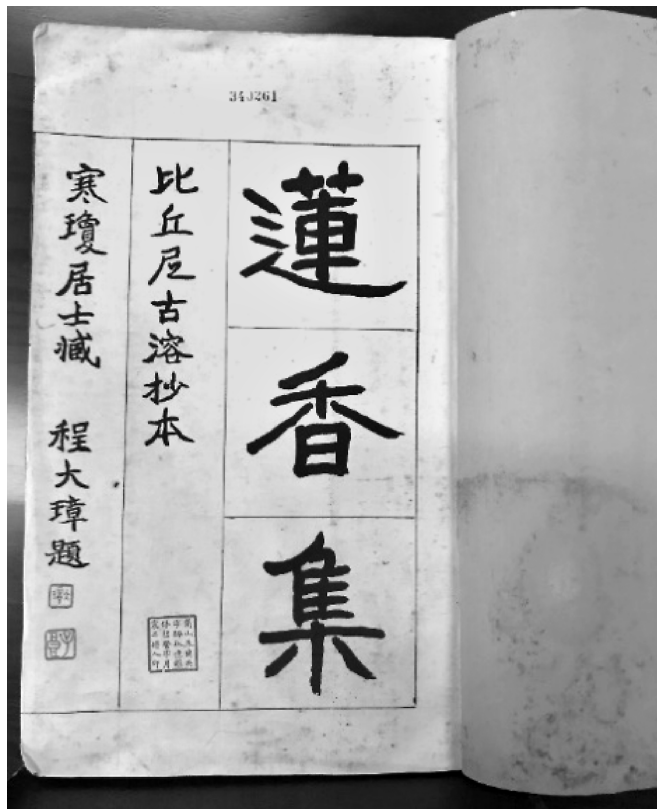 343261
蓮香集
比丘尼古溶抄本
寒瓊居士藏 程大璋題